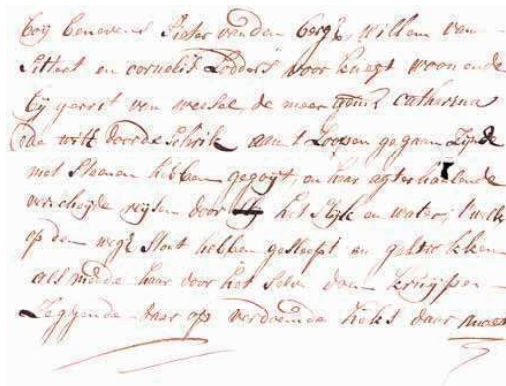 Bij benevens Pieter van den Berg, willem van
Sittert en cornelis Lodders voor knegt woonende
bij gerrit van weesel, de meer gem. Catharina
de witt door de Schrik aan 't Loopen gegaan Zijnde
met Steenen hebben gegoijt, en haar agterhaalende
verscheijde reijsen door het Slijk en water, 't welk
op den weg Stont hebben gesleept en getrokken
als meede haar voor het selve doen kruijpen
Zeggende daar op verdoemde heks daar moet